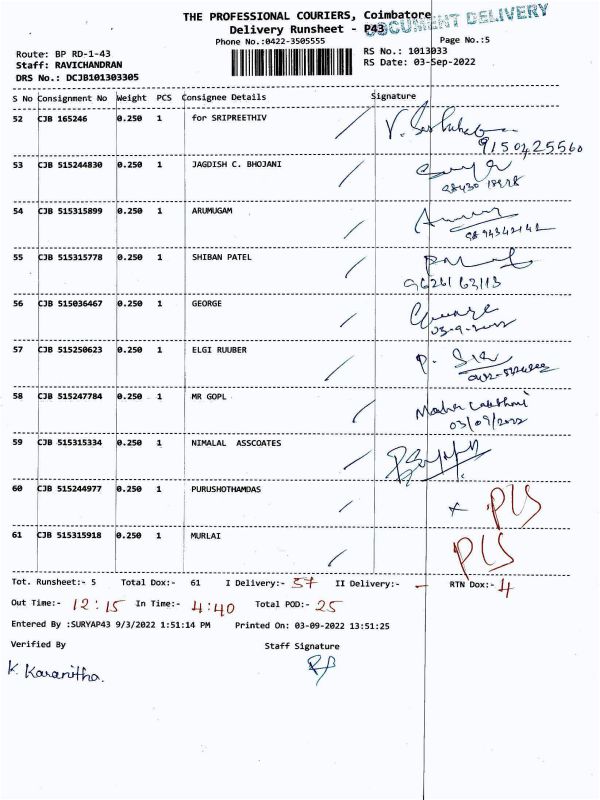 THE PROFESSIONAL COURIERS, Coimbatore
DOCUMENT DELIVERY
Delivery Runsheet - P43
Phone No.:0422-3505555 Page No.:5
Route: BP RD-1-43 RS No.: 1013033
Staff: RAVICHANDRAN RS Date: 03-Sep-2022
DRS No.: DCJB101303305
S No Consignment No Weight PCS Consignee Details Signature
52 CJB 165246 0.250 1 for SRIPREETHIV
9150425560
53 CJB 515244830 0.250 1 JAGDISH C. BHOJANI
54 CJB 515315899 0.250 1 ARUMUGAM
9894342142
55 CJB 515315778 0.250 1 SHIBAN PATEL
9626163113
56 CJB 515036467 0.250 1 GEORGE
George
03-9-2022
57 CJB 515250623 0.250 1 ELGI RUUBER
58 CJB 515247784 0.250 1 MR GOPL
Maha Lakshmi
03/09/2022
59 CJB 515315334 0.250 1 NIMALAL ASSCOATES
60 CJB 515244977 0.250 1 PURUSHOTHAMDAS PLS
61 CJB 515315918 0.250 1 MURLAI PLS
Tot. Runsheet:- 5 Total Dox:- 61 I Delivery:- 57 II Delivery:- - RTN Dox:- 4
Out Time:- 12:15 In Time:- 4:40 Total POD:- 25
Entered By :SURYAP43 9/3/2022 1:51:14 PM Printed On: 03-09-2022 13:51:25
Verified By Staff Signature
K. Karanitha.